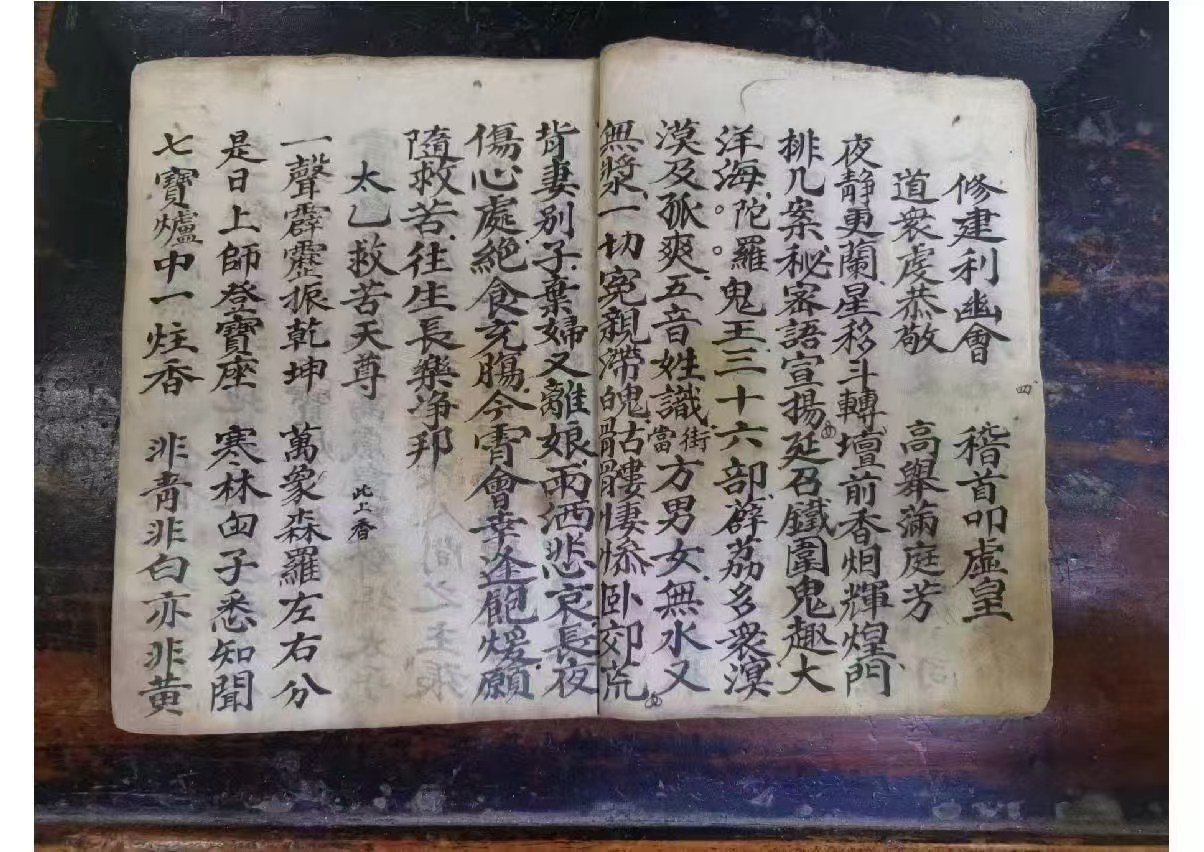 修建利幽會　稽首叩虛皇
道衆虔恭敬　高舉滿庭芳
夜靜更蘭星移斗轉壇前香烟輝煌門
排几案秘密語宣揚延召鐵圍鬼趣大
洋海。陀羅鬼王三十六部薜荔多衆溟
漠。及孤爽五音姓識街當方男女無水又
無漿一切冤親滯魄枯髏骨髅悽慘臥郊荒
背妻別子棄婦又離娘兩洒悲哀長夜
傷心處絕食充腸今宵會幸逢飽煖願
隨救苦往生長樂淨邦
太乙救苦天尊　此上香
一聲霹靂振乾坤　萬象森羅左右分
是日上師登寶座　寒林由子悉知聞
七寶爐中一炷香　非青非白亦非黃
四